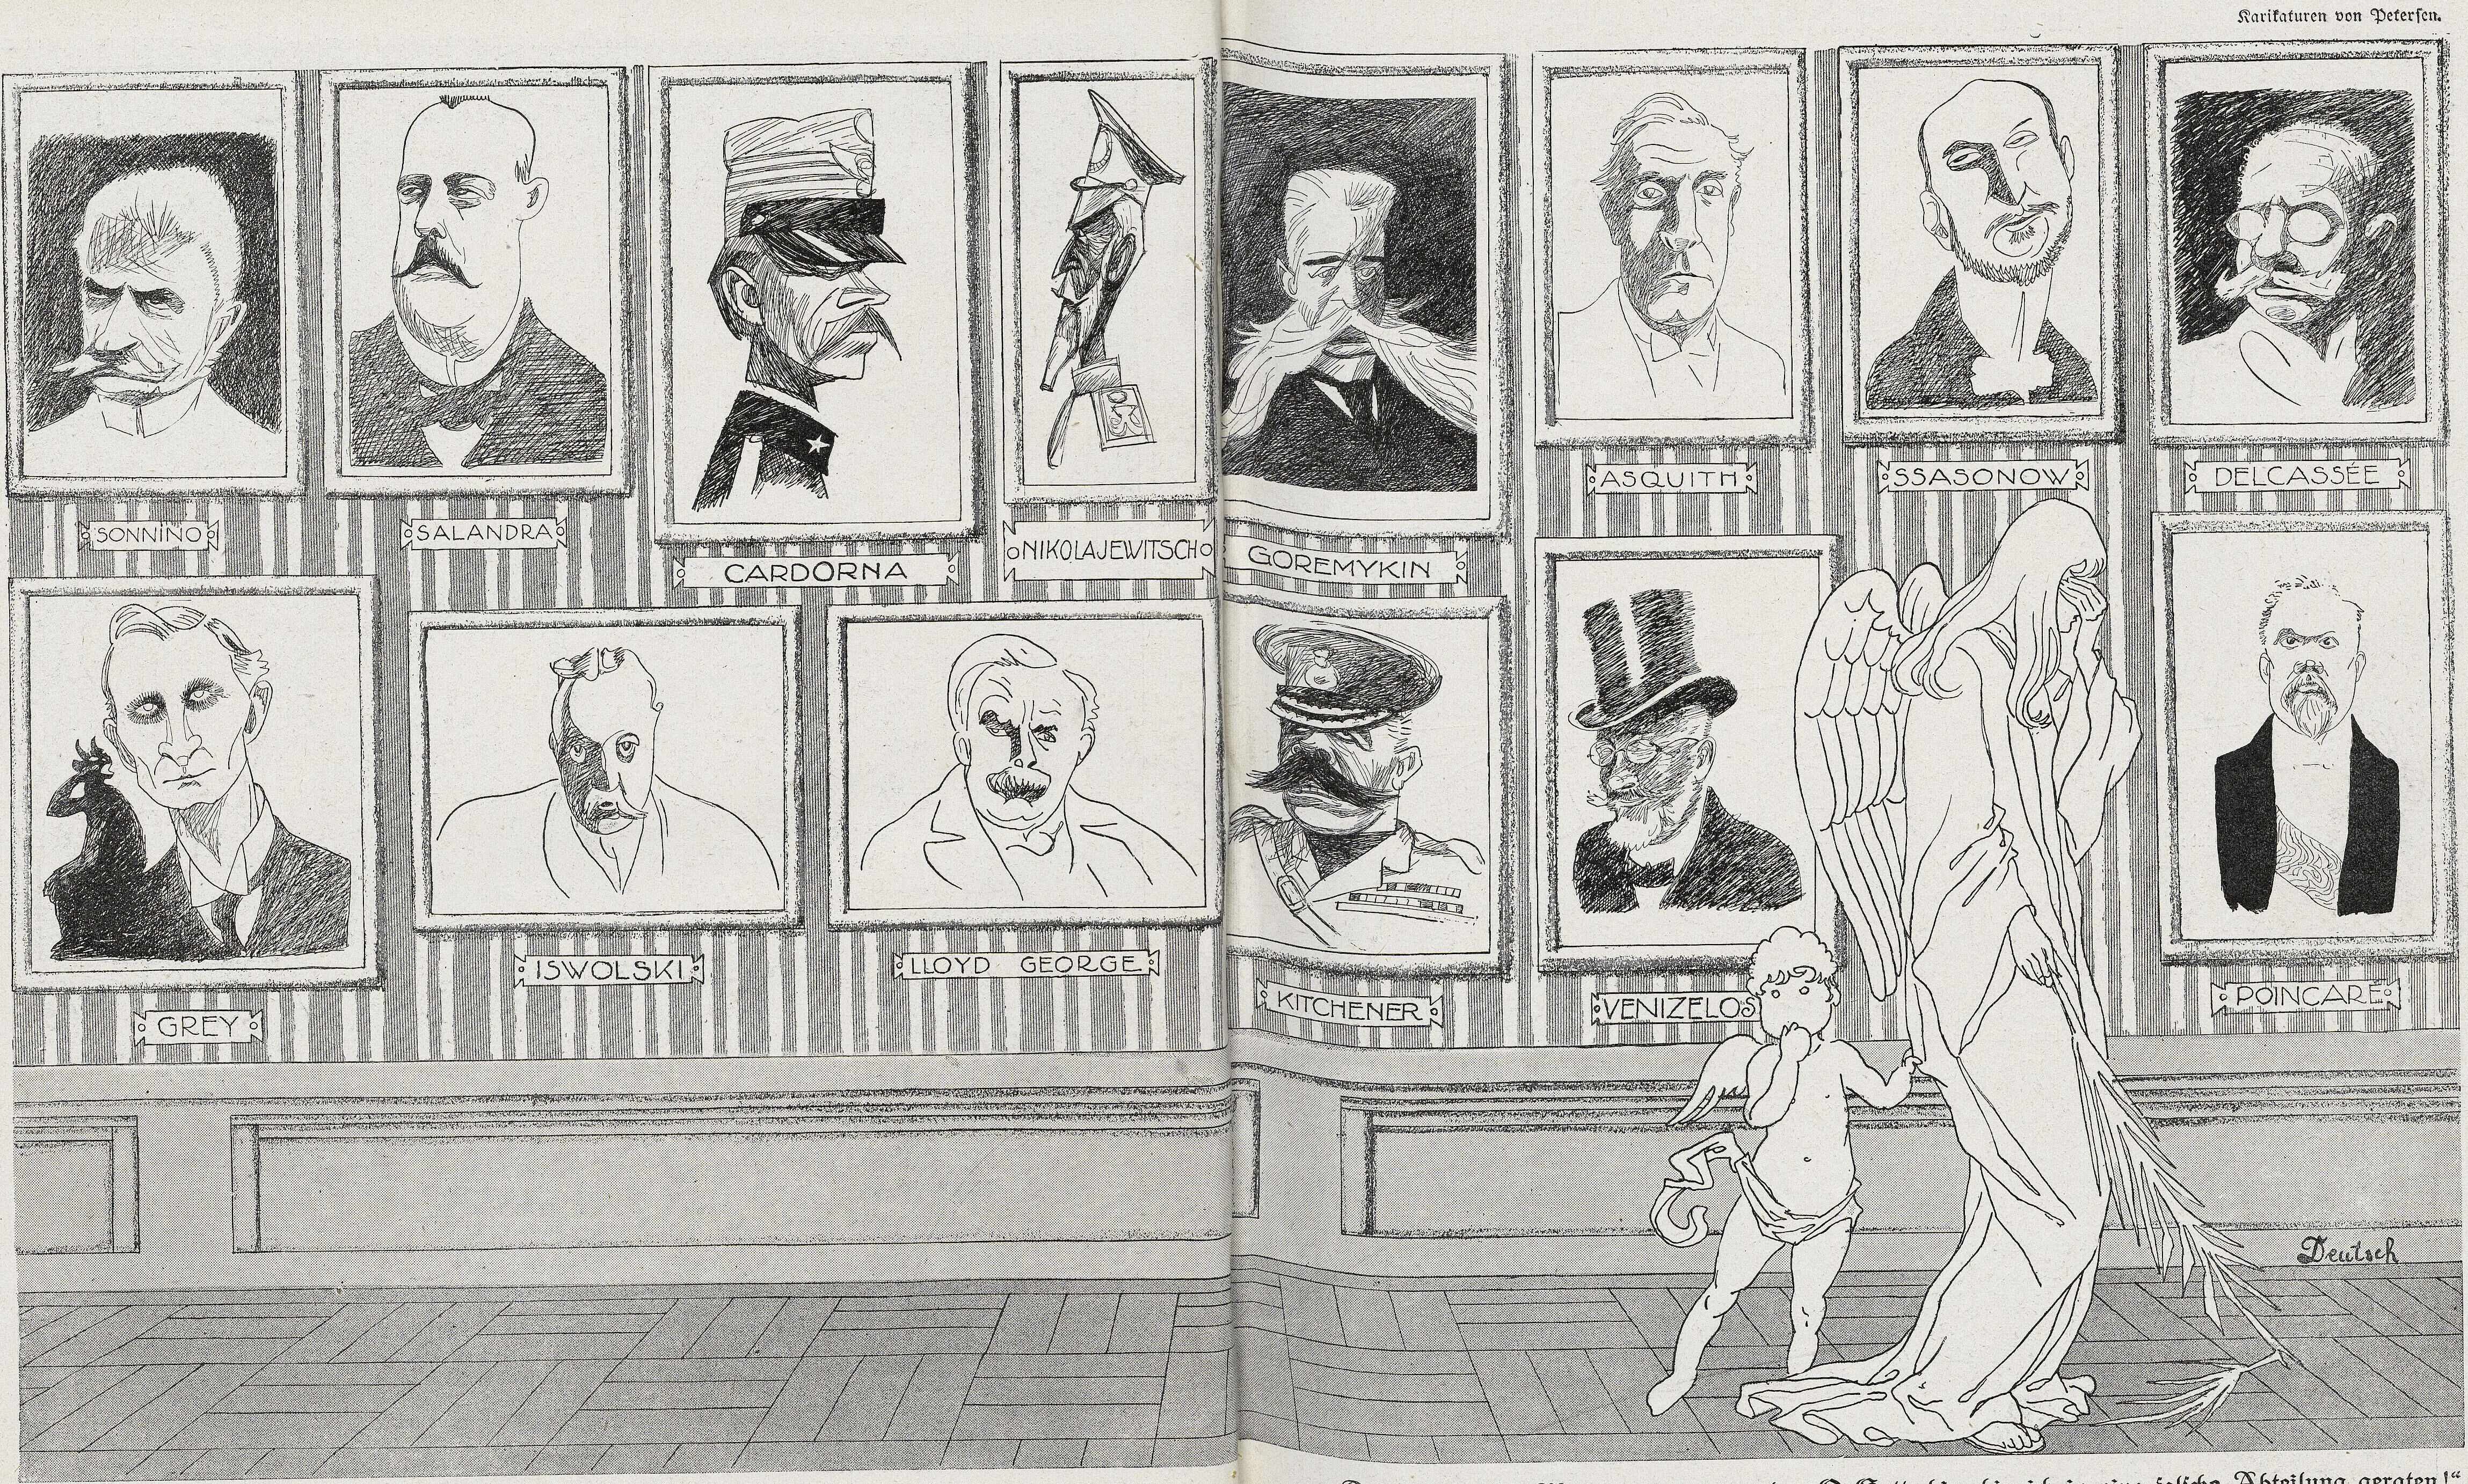 Karikaturen von Petersen.
SONNINO
SALANDRA
CARDORNA
NIKOLAJEWITSCH
GOREMYKIN
ASQUITH
SSASONOW
DELCASSÉE
GREY
ISWOLSKI
LLOYD GEORGE
KITCHENER
VENIZELOS
POINCARE
Deutsch
Abteilung geraten!“